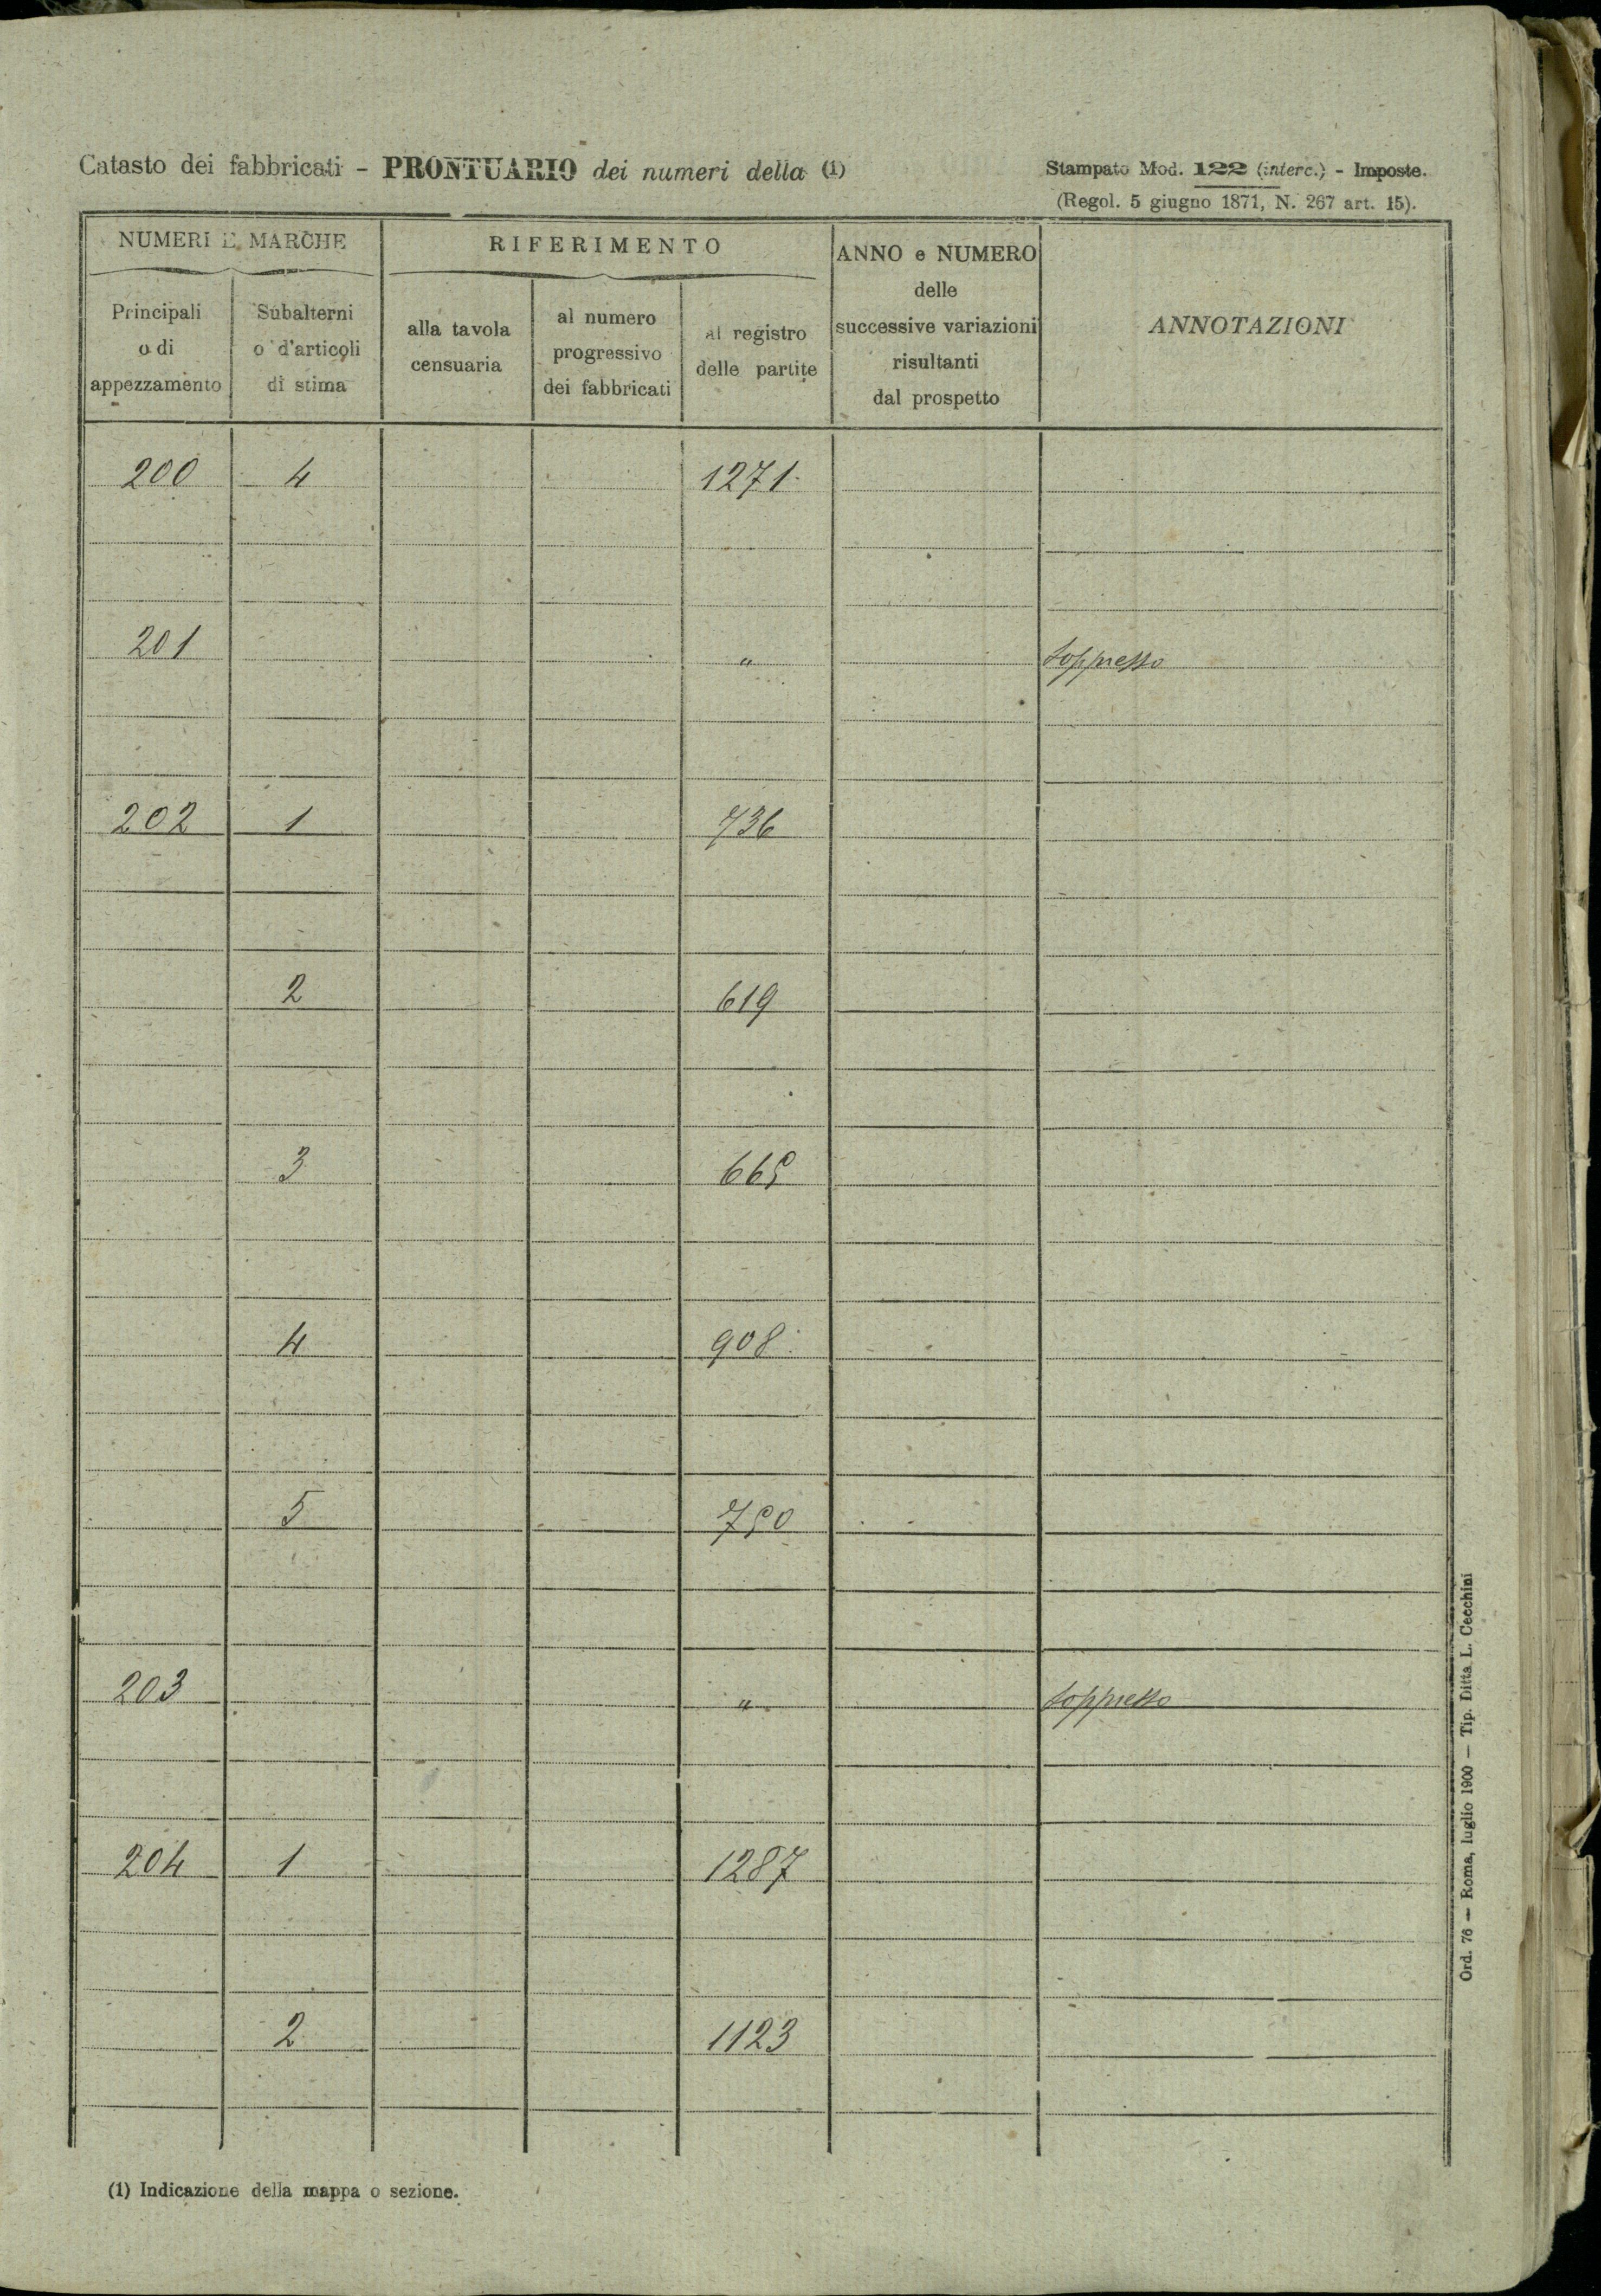 Catasto dei fabbricati - PRONTUARIO dei numeri della (1)
Stampato Mod. 122 (interc.) - Imposte.
(Regol. 5 giugno 1871, N. 267 art. 15).
NUMERI E MARCHE
RIFERIMENTO
ANNO e NUMERO
delle
successive variazioni
risultanti
dal prospetto
ANNOTAZIONI
Principali
o di
appezzamento
Subalterni
o d'articoli
di stima
alla tavola
censuaria
al numero
progressivo
dei fabbricati
al registro
delle partite
200 4 1271
201 " soppresso
202 1 736
2 619
3 665
4 908
5 750
203 " soppresso
204 1 1287
2 1123
(1) Indicazione della mappa o sezione.
Ord. 76 — Roma, luglio 1900 — Tip. Ditta L. Cecchini